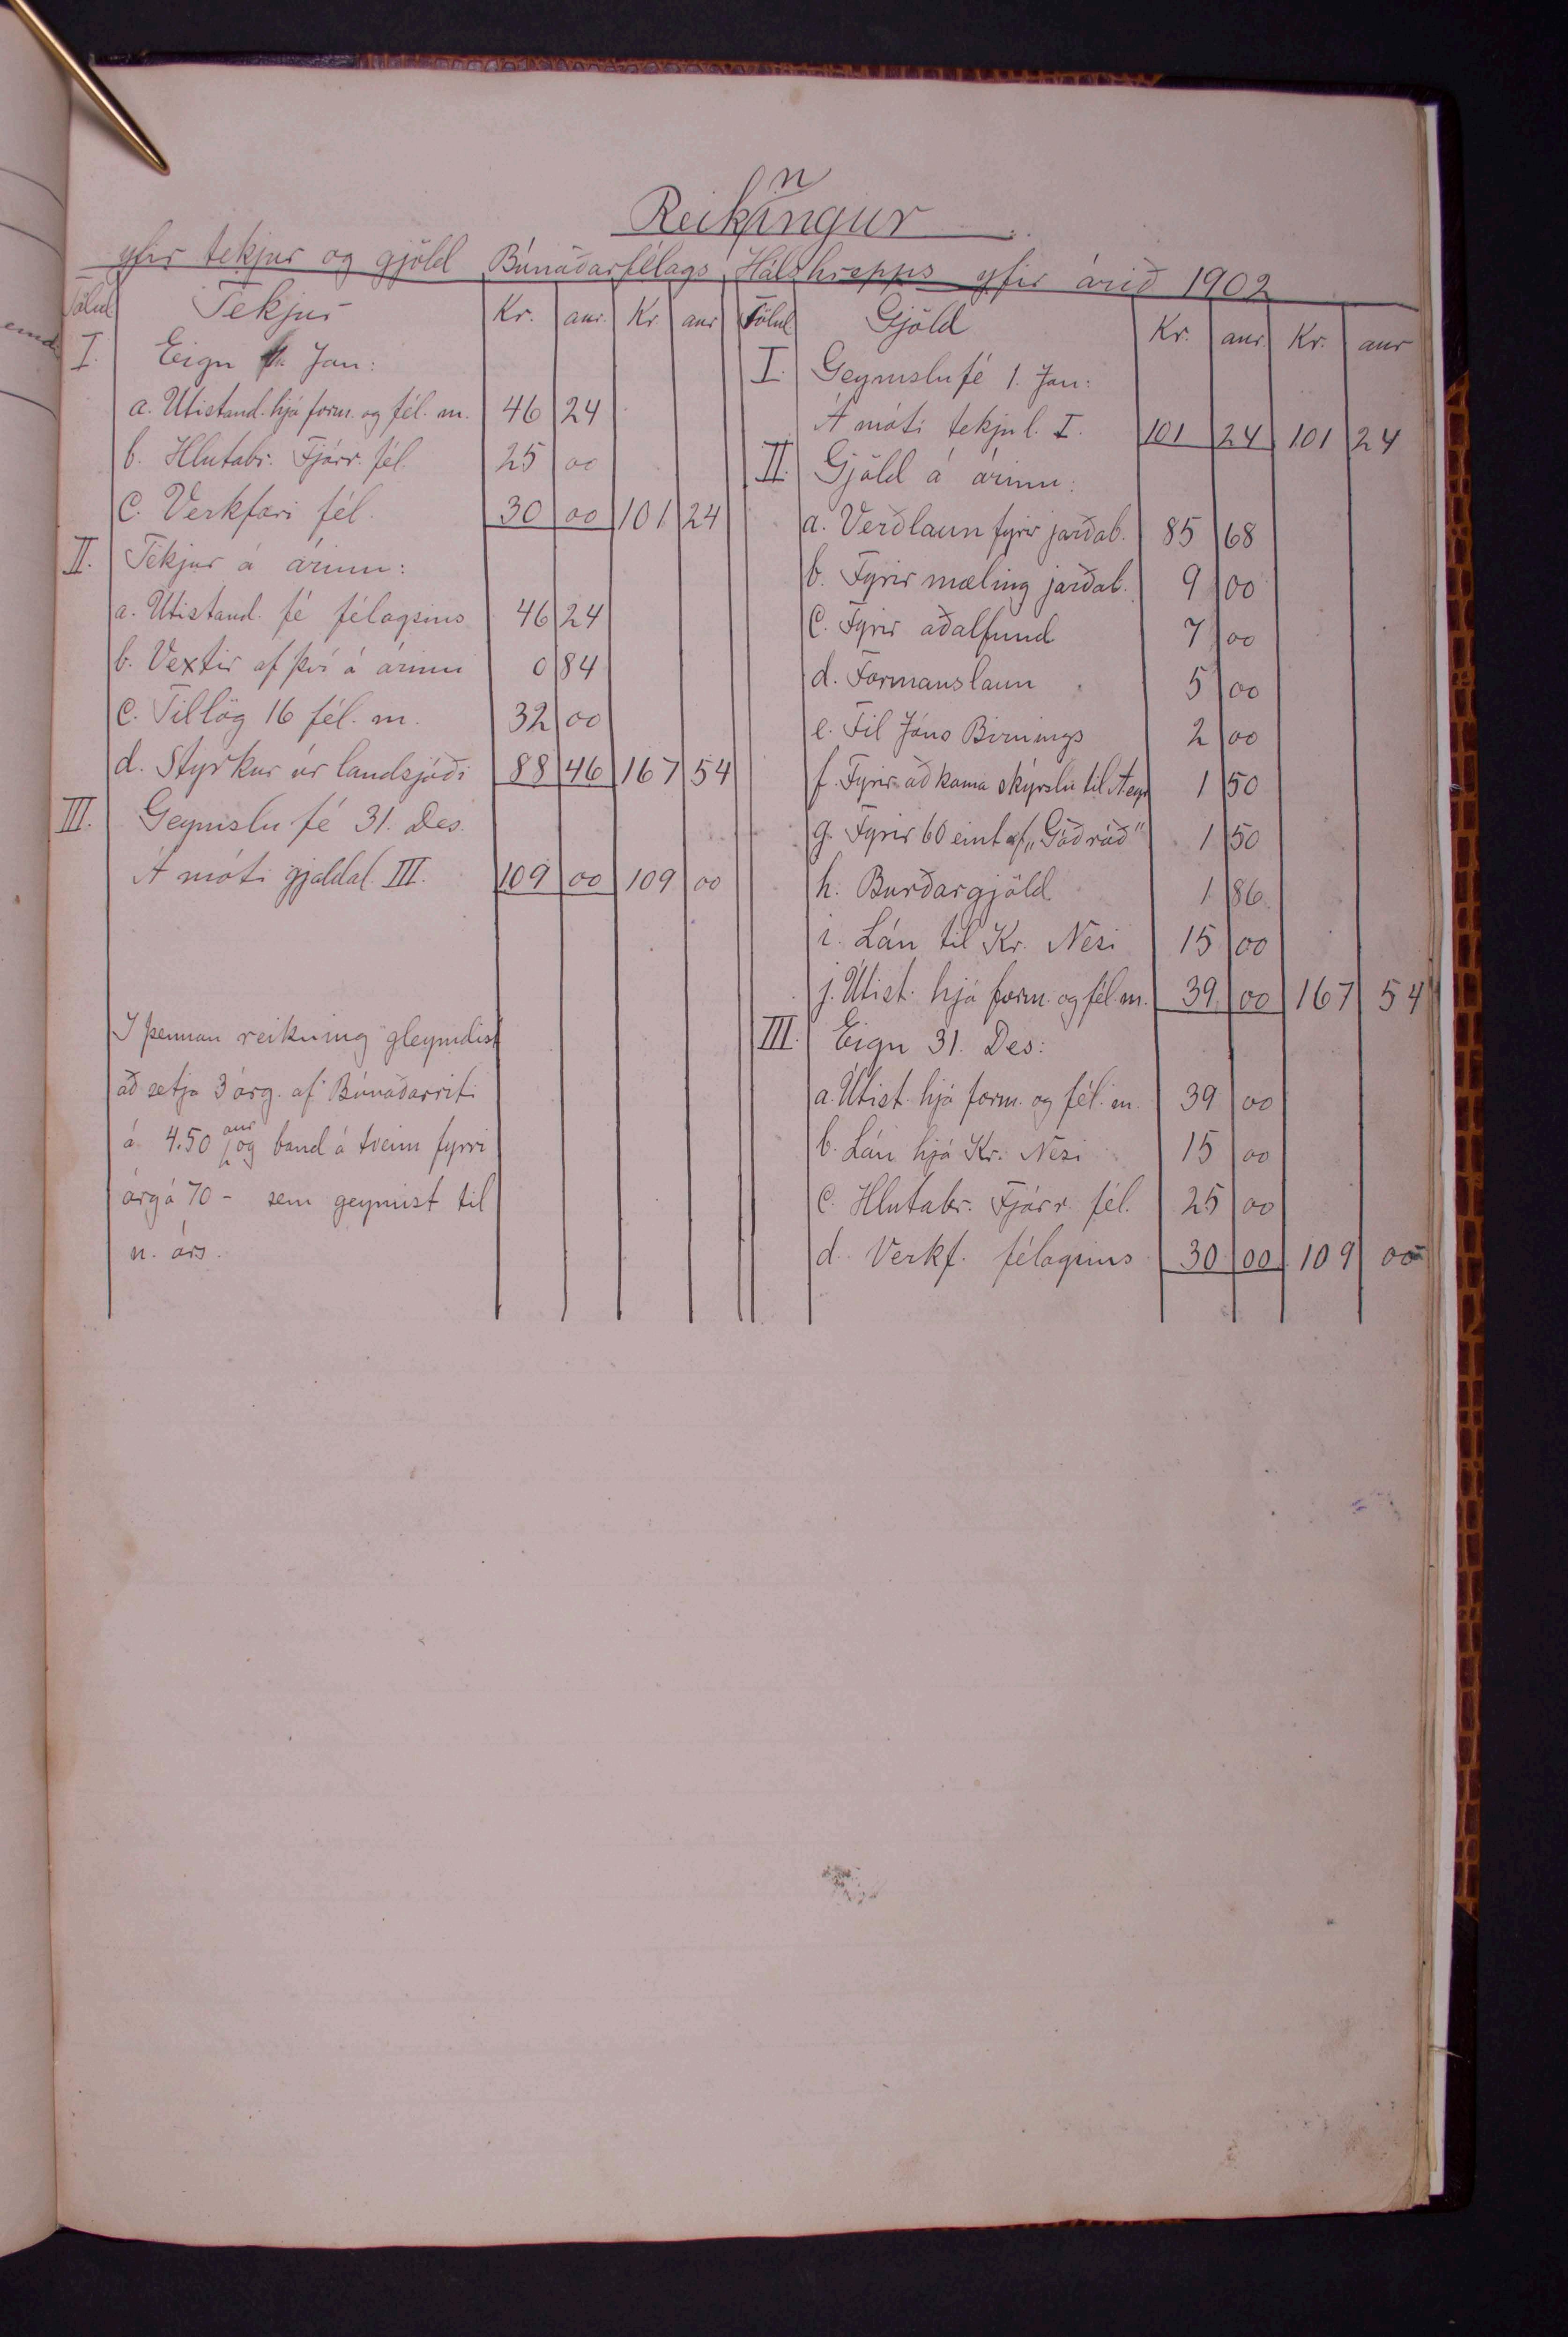 Reikningur
yfir tekjur og gjöld Búnaðarfélags Hálshrepps yfir árið 1902
Tölul Tekjur Kr. aur. Kr aur
I. Eign 1. Jan:
a. Útistand. hjá form. og fél. m. 46 24
b. Hlutabr. Fjárr. fél. 25 00
c. Verkfæri fél. 30 00 101 24
II. Tekjur á árinu:
a. Útistand. fé félagsins 46 24
b. Vextir af því á árinu 0 84
c. Tillög 16 fél. m. 32 00
d. Styrkur úr landsjóði 88 46 167 54
III. Geymslu fé 31. Des.
Á móti gjaldal. III. 109 00 109 00
Í þennan reikning gleymdist
að setja 3 árg. af Búnaðarriti
á 4.50 aur og band á tveim fyrri
árg á 70 - sem geymist til
n. árs.
Tölul Gjöld Kr. aur. Kr. aur
I. Geymslufé 1. Jan:
Á móti tekjul. I. 101 24 101 24
II. Gjöld á árinu:
a. Verðlaun fyrir jarðab. 85 68
b. Fyrir mæling jarðab. 9 00
c. Fyrir aðalfund 7 00
d. Formanslaun 5 00
e. Til Jóns Birnings 2 00
f. Fyrir að koma skýrslu til Aeyr 1 50
g. Fyrir 60 eint af "Góð ráð" 1 50
h. Burðargjöld 1 86
i. Lán til Kr. Nesi 15 00
j. Útist. hjá form. og fél. m. 39 00 167 54
III. Eign 31. Des:
a. Útist. hjá form. og fél. m. 39 00
b. Lán hjá Kr. Nesi 15 00
c. Hlutabr. Fjárr. fél. 25 00
d. Verkf. félagsins 30 00 109 00